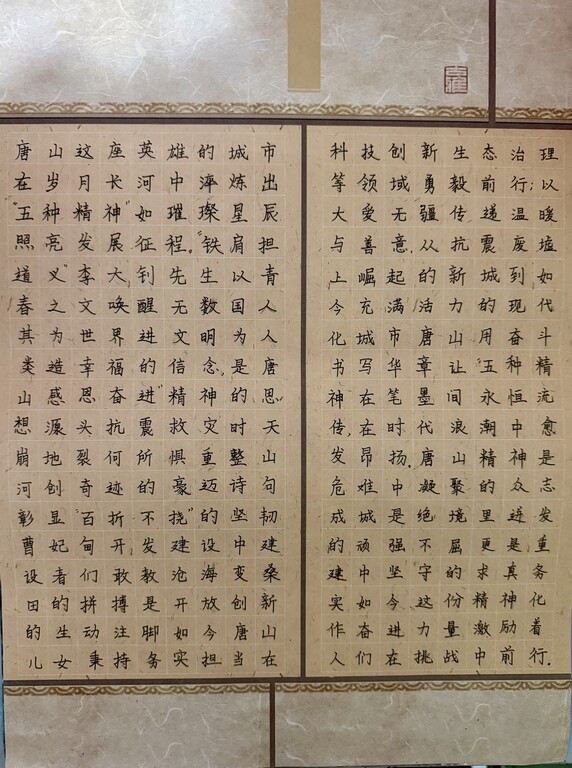 唐山这座英雄的城市
在岁月长河中淬炼出
“五种精神”如璀璨星辰
照亮发展征程。“铁肩担
道义”李大钊先生以青
春之文唤醒无数国人
其为世界进文明为人
类造幸福的信念,是唐
山感恩奋进”精神的思
想源头抗震救灾时天
崩地裂何所惧重整山
河创奇迹的豪迈诗句
彰显“百折不挠”的坚韧
曹妃甸开发建设中建
设者们敢教沧海变桑
田的拼搏是开放创新
的生动注脚如今唐山
儿女秉持务实担当在
科技创新生态治理
等领域勇毅前行;以
大爱无疆传递温暖
与善意,从抗震废墟
上崛起的新城到如
今充满活力的现代
化城市唐山用奋斗
书写华章让“五种精
神在笔墨间永恒流
传,在时代浪潮中愈
发昂扬.唐山精神是
危难中凝聚的众志
成城是绝境里迸发
的顽强不屈更是重
建中坚守的求真务
实如今这份精神化
作奋进力量激励着
人们在挑战中前行.